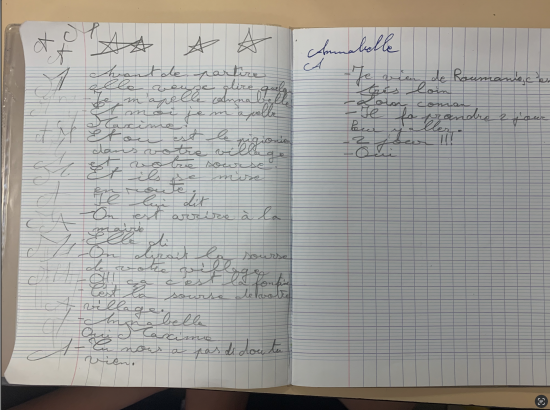 Avant de partire
elle veuse dire quelque
Je m'apelle Annabelle
Et moi je m'apelle
Maxime
Et ou est le
dans votre village
est votre sourse
Et ils se mire
en route.
Il lui dit
- On est arrire à la
mairi
- Elle di
- On dirait la sourse
de votre village
- Oh ça c'est la
C'est la sourse de votre
village.
- Annabelle
Oui Maxime
- Tu nous a pas di dou tu
vien.
Annabelle
A
- Je vien de Roumanie, c'es
très loin
- Loin coman
- Il fo prandre 2 jour
Pour y aller.
- 2 jour !!!
- Oui